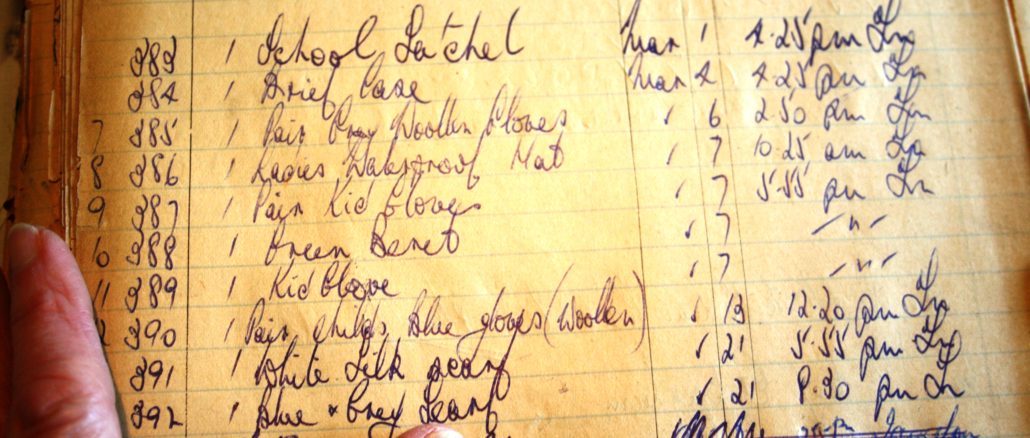 383 1 School Satchel Mar 1 4.25 pm Trn
384 1 Brief Case Mar 4 4.25 pm Trn
7 385 1 Pair Grey Woollen Gloves " 6 2.50 pm Trn
8 386 1 Ladies Waterproof Hat " 7 10.25 am Trn
9 387 1 Pair Kid Gloves " 7 5.55 pm Trn
10 388 1 Green Beret " 7 — " —
11 389 1 Kid Glove " 7 — " —
390 1 Pair Childs Blue gloves (Woollen) " 13 12.20 pm Trn
391 1 White Silk scarf " 21 5.55 pm Trn
392 1 Blue & Grey Scarf " 21 8.30 pm Trn